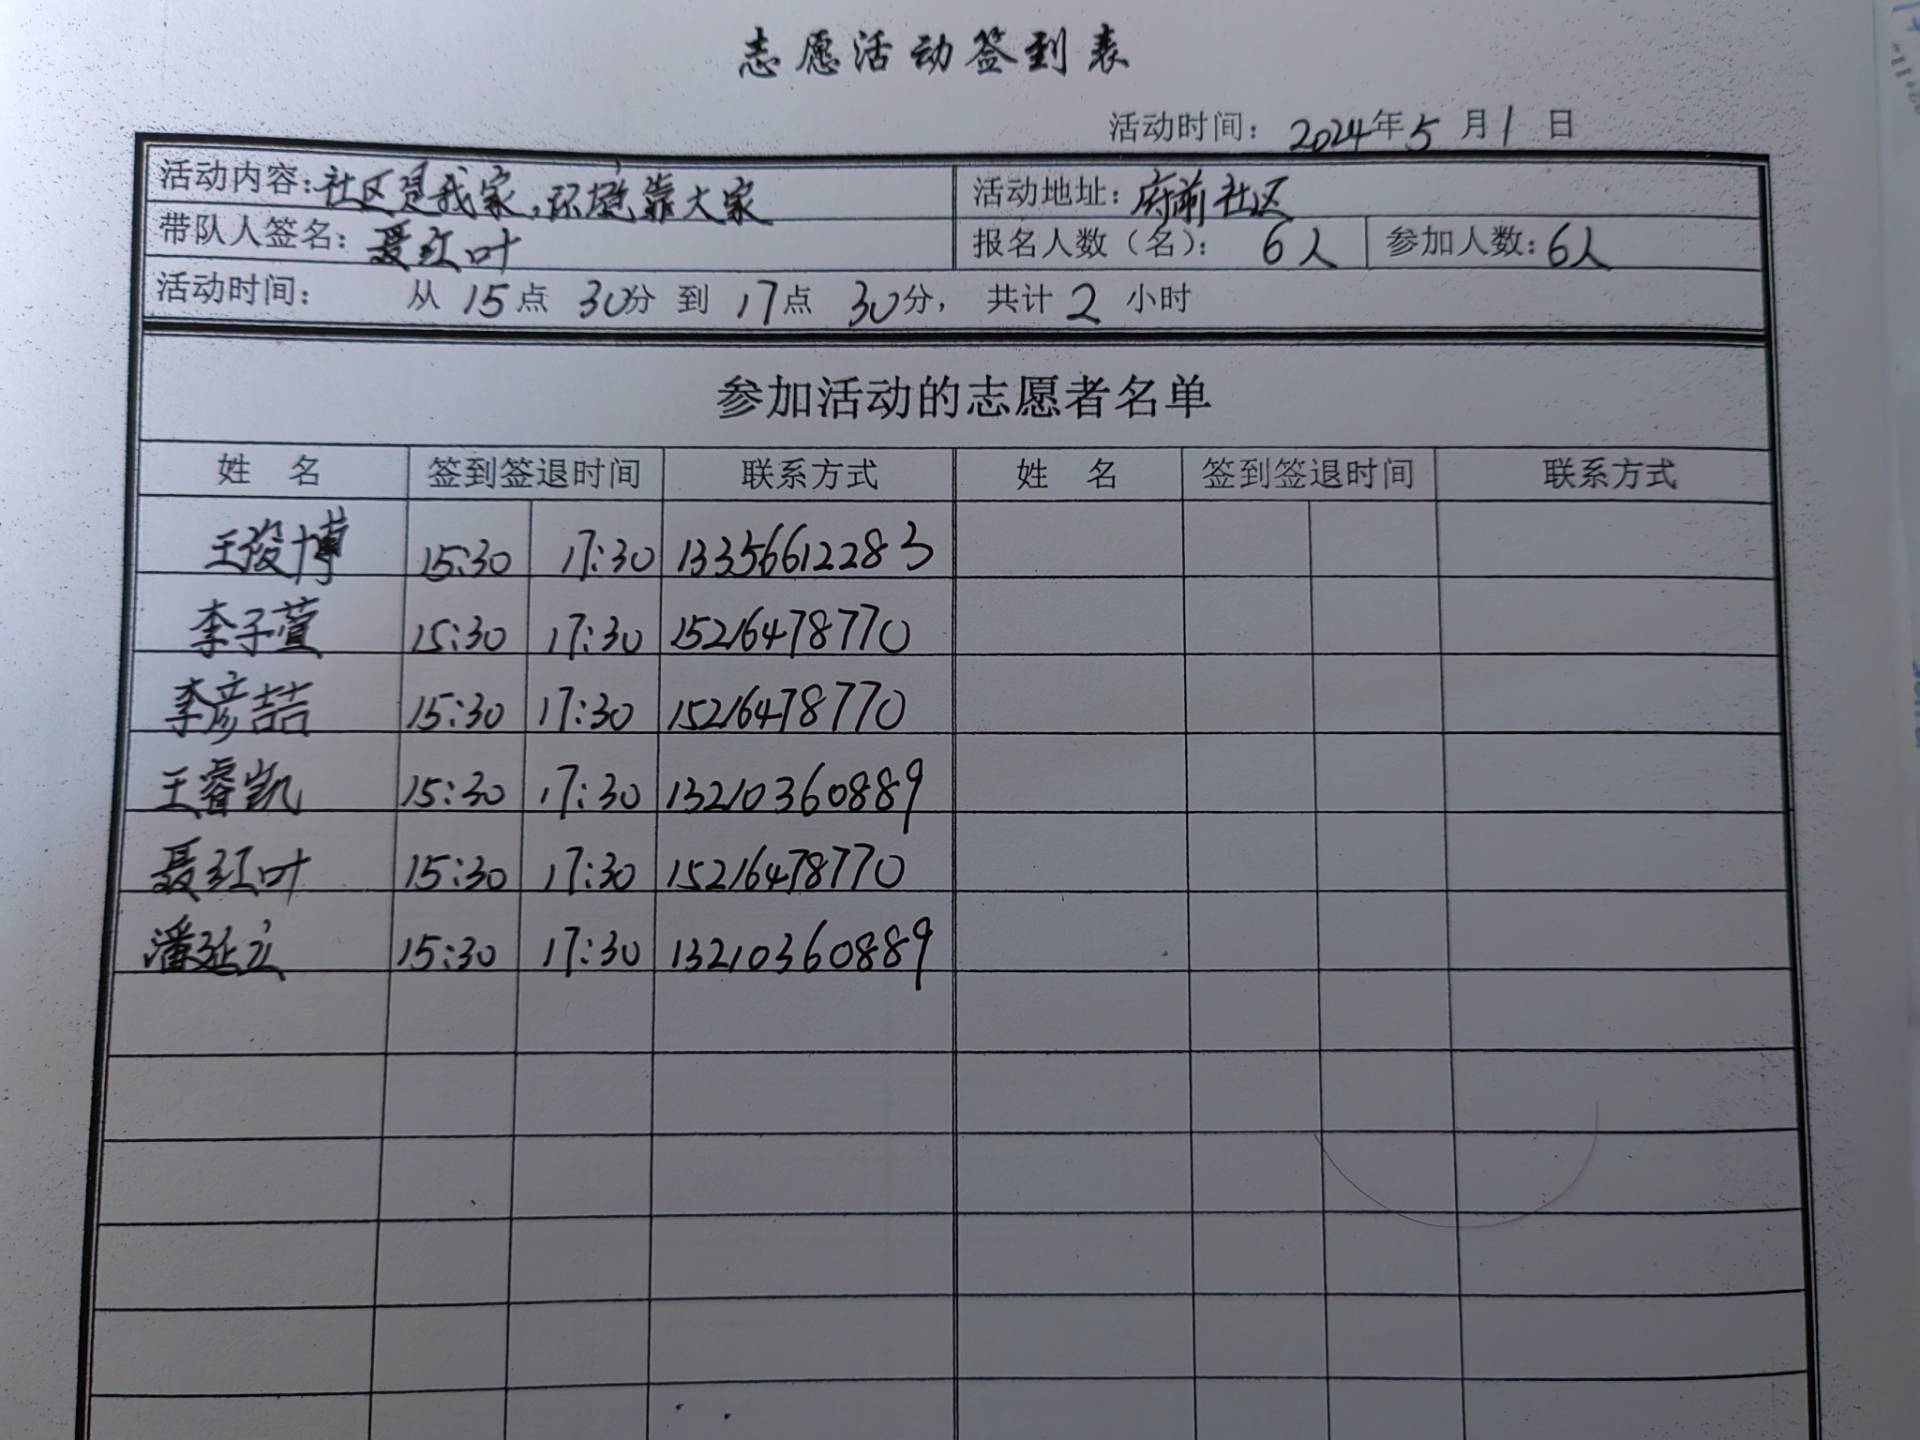 志愿活动签到表
活动时间：2024年5月1日
活动内容：社区是我家，环境靠大家 活动地址：府前社区
带队人签名：聂红叶 报名人数（名）：6人 参加人数：6人
活动时间： 从15点30分到17点30分， 共计2小时
参加活动的志愿者名单
姓名 签到签退时间 联系方式 姓名 签到签退时间 联系方式
王俊博 15:30 17:30 13356612283
李子萱 15:30 17:30 15216478770
李彦喆 15:30 17:30 15216478770
王睿凯 15:30 17:30 13210360889
聂红叶 15:30 17:30 15216478770
潘延立 15:30 17:30 13210360889